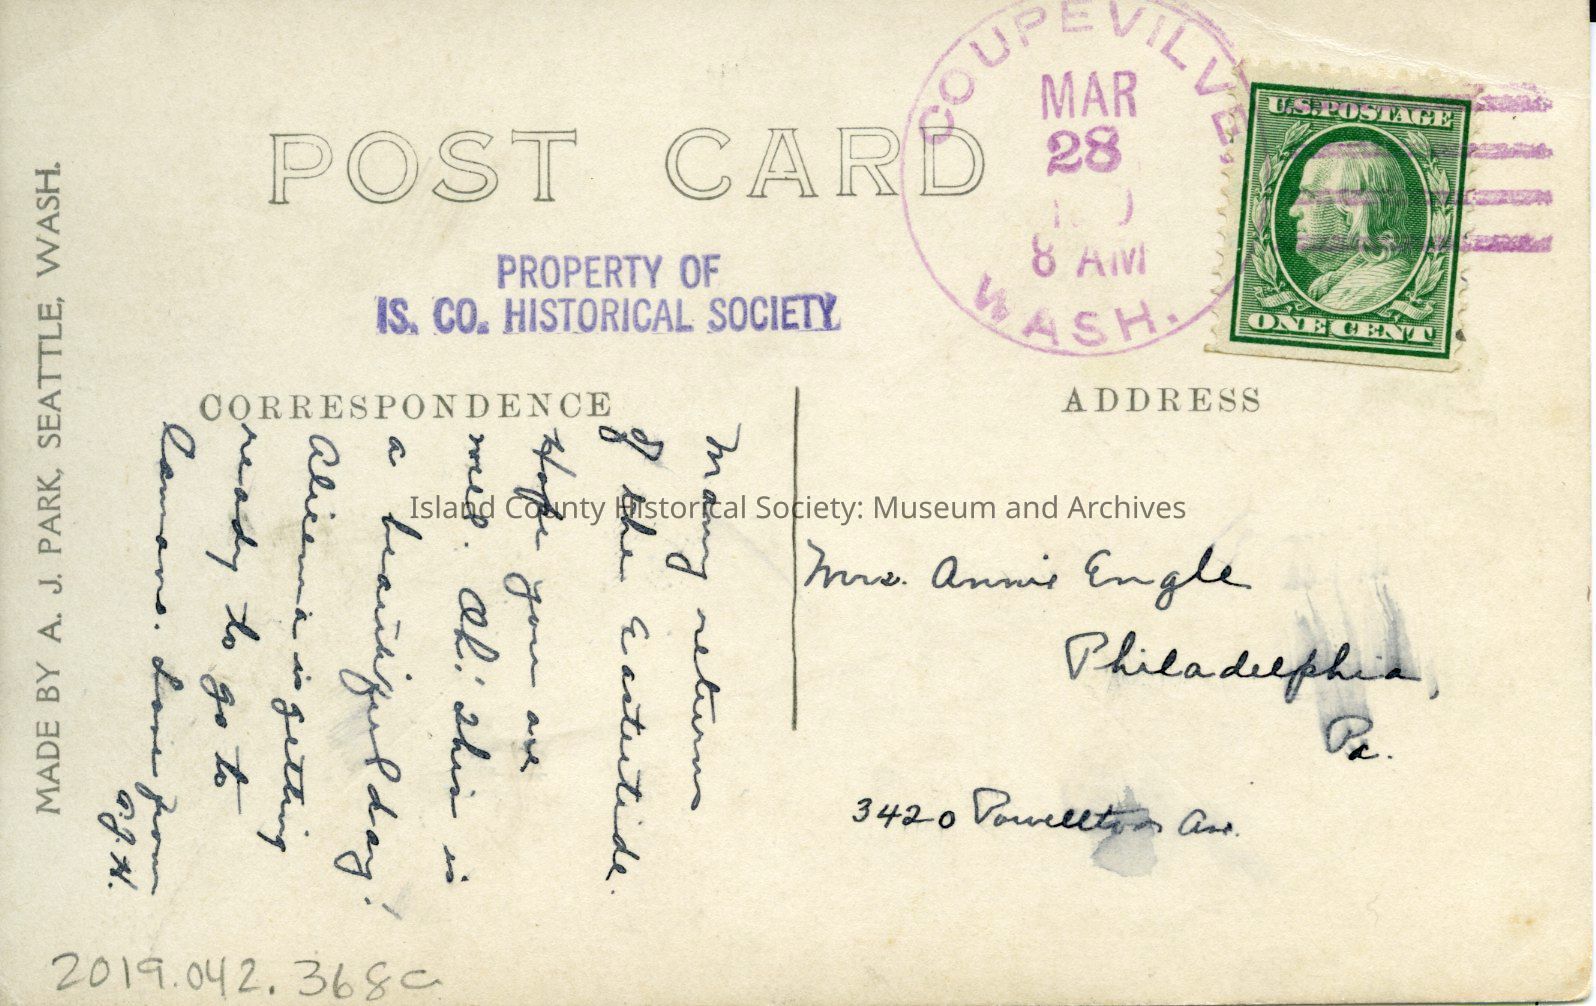 COUPEVILLE,
MAR
28
8 AM
WASH.
U.S. POSTAGE
ONE CENT
POST CARD
PROPERTY OF
IS. CO. HISTORICAL SOCIETY
CORRESPONDENCE
ADDRESS
Many returns
of the Eastertide.
Hope you are
well. Oh! This is
a beautiful day!
is getting
ready to go to
Camano. Love from
Island County Historical Society: Museum and Archives
Mrs. Annie Engle
Philadelphia,
Pa.
3420 Powellton Ave.
MADE BY A. J. PARK, SEATTLE, WASH.
2019.042.368a